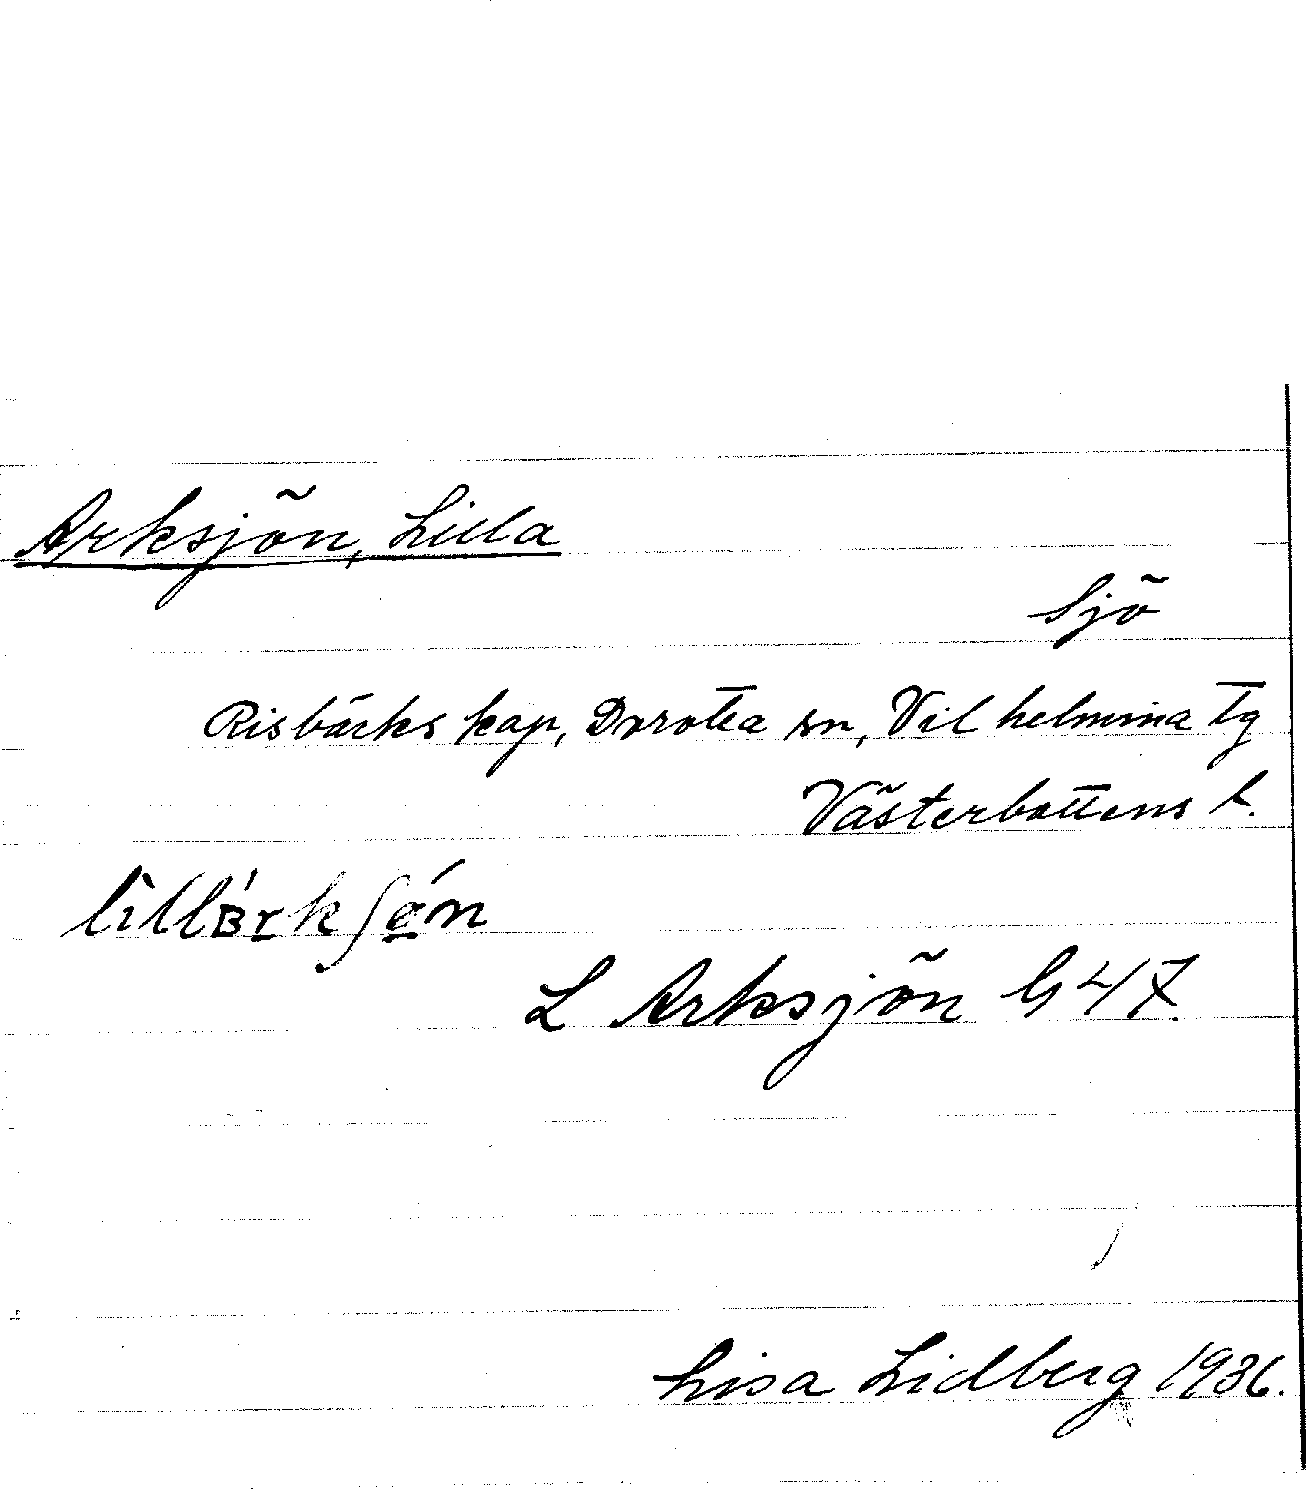 Arksjön, Lilla
Sjö
Risbäcks kap, Dorotea sn, Vilhelmina tg
Västerbottens l.
L Arksjön G 47
Lisa Lidberg 1936.